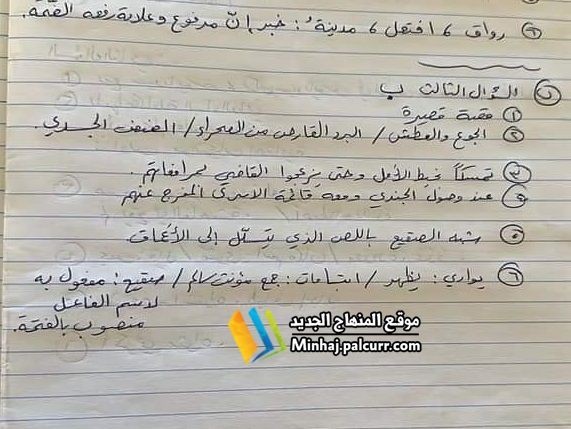 ④ رواق ، افتعل ، مدينةٌ : خبر إنّ مرفوع وعلامة رفعه الضمّة.
السؤال الثالث ب
① قصة قصيرة
② الجوع والعطش / البرد القارص من الصحراء / الضعف الجسدي.
③ تمسكاً بخيط الأمل وحتى يزعجوا القاضي بمرافعاتهم.
④ عند وصول الجندي ومعه قائمة الأسرى المفرج عنهم
⑤ شبه الصقيع باللص الذي يتسلّل إلى الأعماق.
⑥ يواري : يظهر / ابتسامات : جمع مؤنث سالم / صقيع : مفعول به
لاسم الفاعل
منصوب بالفتحة.
موقع المنهاج الجديد
Minhaj.palcurr.com